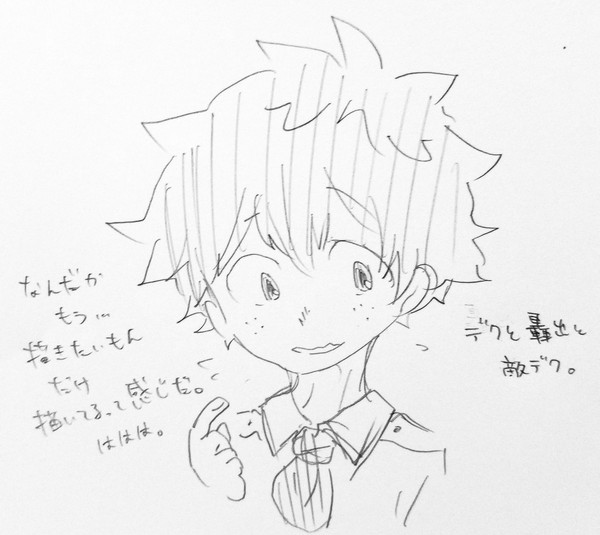 なんだか
もう...
描きたいもん
だけ
描いてるって感じだ。
ははは。
デクと轟出と
敵デク。